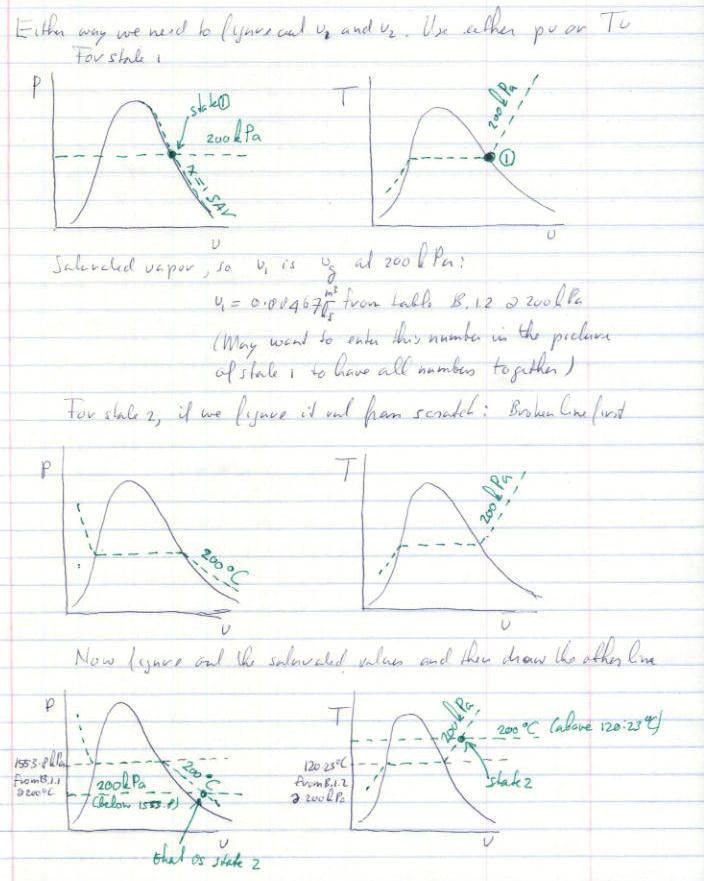 Either way we need to figure out v₁ and v₂. Use either pv or Tv
For state 1
P
state ①
200 kPa
x=1 SAV
v
T
200 kPa
①
v
Saturated vapor, so v₁ is v_g at 200 kPa:
v₁ = 0.88467 m³/kg from table B.1.2 @ 200 kPa
(May want to enter this number in the picture
of state 1 to have all numbers together)
For state 2, if we figure it out from scratch: Broken line first
P
200°C
v
T
200 kPa
v
Now figure out the saturated values and then draw the other line
P
1553.8 kPa
from B.1.1
@ 200°C
200 kPa
(below 1553.8)
200°C
v
that is state 2
T
120.23°C
from B.1.2
@ 200 kPa
200 kPa
200°C (above 120.23°C)
state 2
v